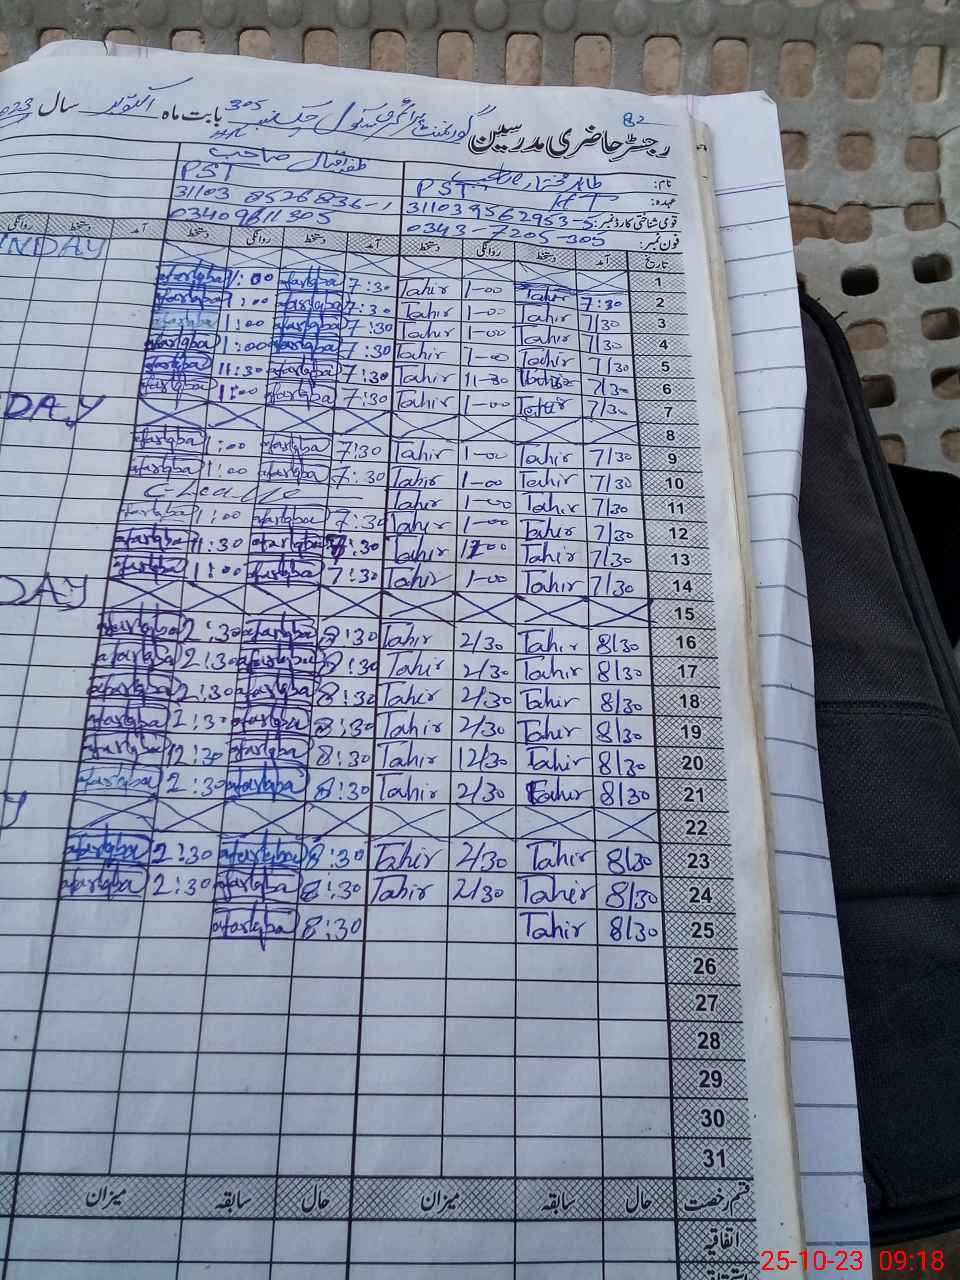 82
رجسٹر حاضری مدرسین گورنمنٹ پرائمری سکول چک نمبر 305 بابت ماہ اکتوبر سال 023
نام: طاہر مختار صاحب ظفر اقبال صاحب
عہدہ: PST HT PST
قومی شناختی کارڈ نمبر: 31103 9562953-5 31103 8526836-1
فون نمبر: 0343-7205-305 03409611305
تاریخ آمد دستخط روانگی دستخط آمد دستخط روانگی دستخط آمد دستخط روانگی
1 UNDAY
2 7:30 Tahir 1-00 Tahir 7:30 afarIqba 1:00 afarIqba
3 7/30 Tahir 1-00 Tahir 7:30 afarIqba 1:00 afarIqba
4 7/30 Tahir 1-00 Tahir 7:30 afarIqba 1:00 afarIqba
5 7/30 Tahir 1-00 Tahir 7:30 afarIqba 1:00 afarIqba
6 7/30 Tahir 11-30 Tahir 7:30 afarIqba 11:30 afarIqba
7 7/30 Tahir 1-00 Tahir 7:30 afarIqba 1:00 afarIqba
8 DAY
9 7/30 Tahir 1-00 Tahir 7:30 afarIqba 1:00 afarIqba
10 7/30 Tahir 1-00 Tahir 7:30 afarIqba 1:00 afarIqba
11 7/30 Tahir 1-00 Tahir C-Leave
12 7/30 Tahir 1-00 Tahir 7:30 afarIqba 1:00 afarIqba
13 7/30 Tahir Tahir :30 afarIqba 11:30 afarIqba
14 7/30 Tahir 1-00 Tahir 7:30 afarIqba 1:00 afarIqba
15 DAY
16 8/30 Tahir 2/30 Tahir 8:30 afarIqba 2:30 afarIqba
17 8/30 Tahir 2/30 Tahir 8:30 afarIqba 2:30 afarIqba
18 8/30 Tahir 2/30 Tahir 8:30 afarIqba 2:30 afarIqba
19 8/30 Tahir 2/30 Tahir 8:30 afarIqba 2:30 afarIqba
20 8/30 Tahir 12/30 Tahir 8:30 afarIqba 12:30 afarIqba
21 8/30 Tahir 2/30 Tahir 8:30 afarIqba 2:30 afarIqba
22 Y
23 8/30 Tahir 2/30 Tahir 8:30 afarIqba 2:30 afarIqba
24 8/30 Taher 2/30 Tahir 8:30 afarIqba 2:30 afarIqba
25 8/30 Tahir 8:30 afarIqba
26
27
28
29
30
31
قسم رخصت حال سابقہ میزان حال سابقہ میزان
اتفاقیہ
25-10-23 09:18